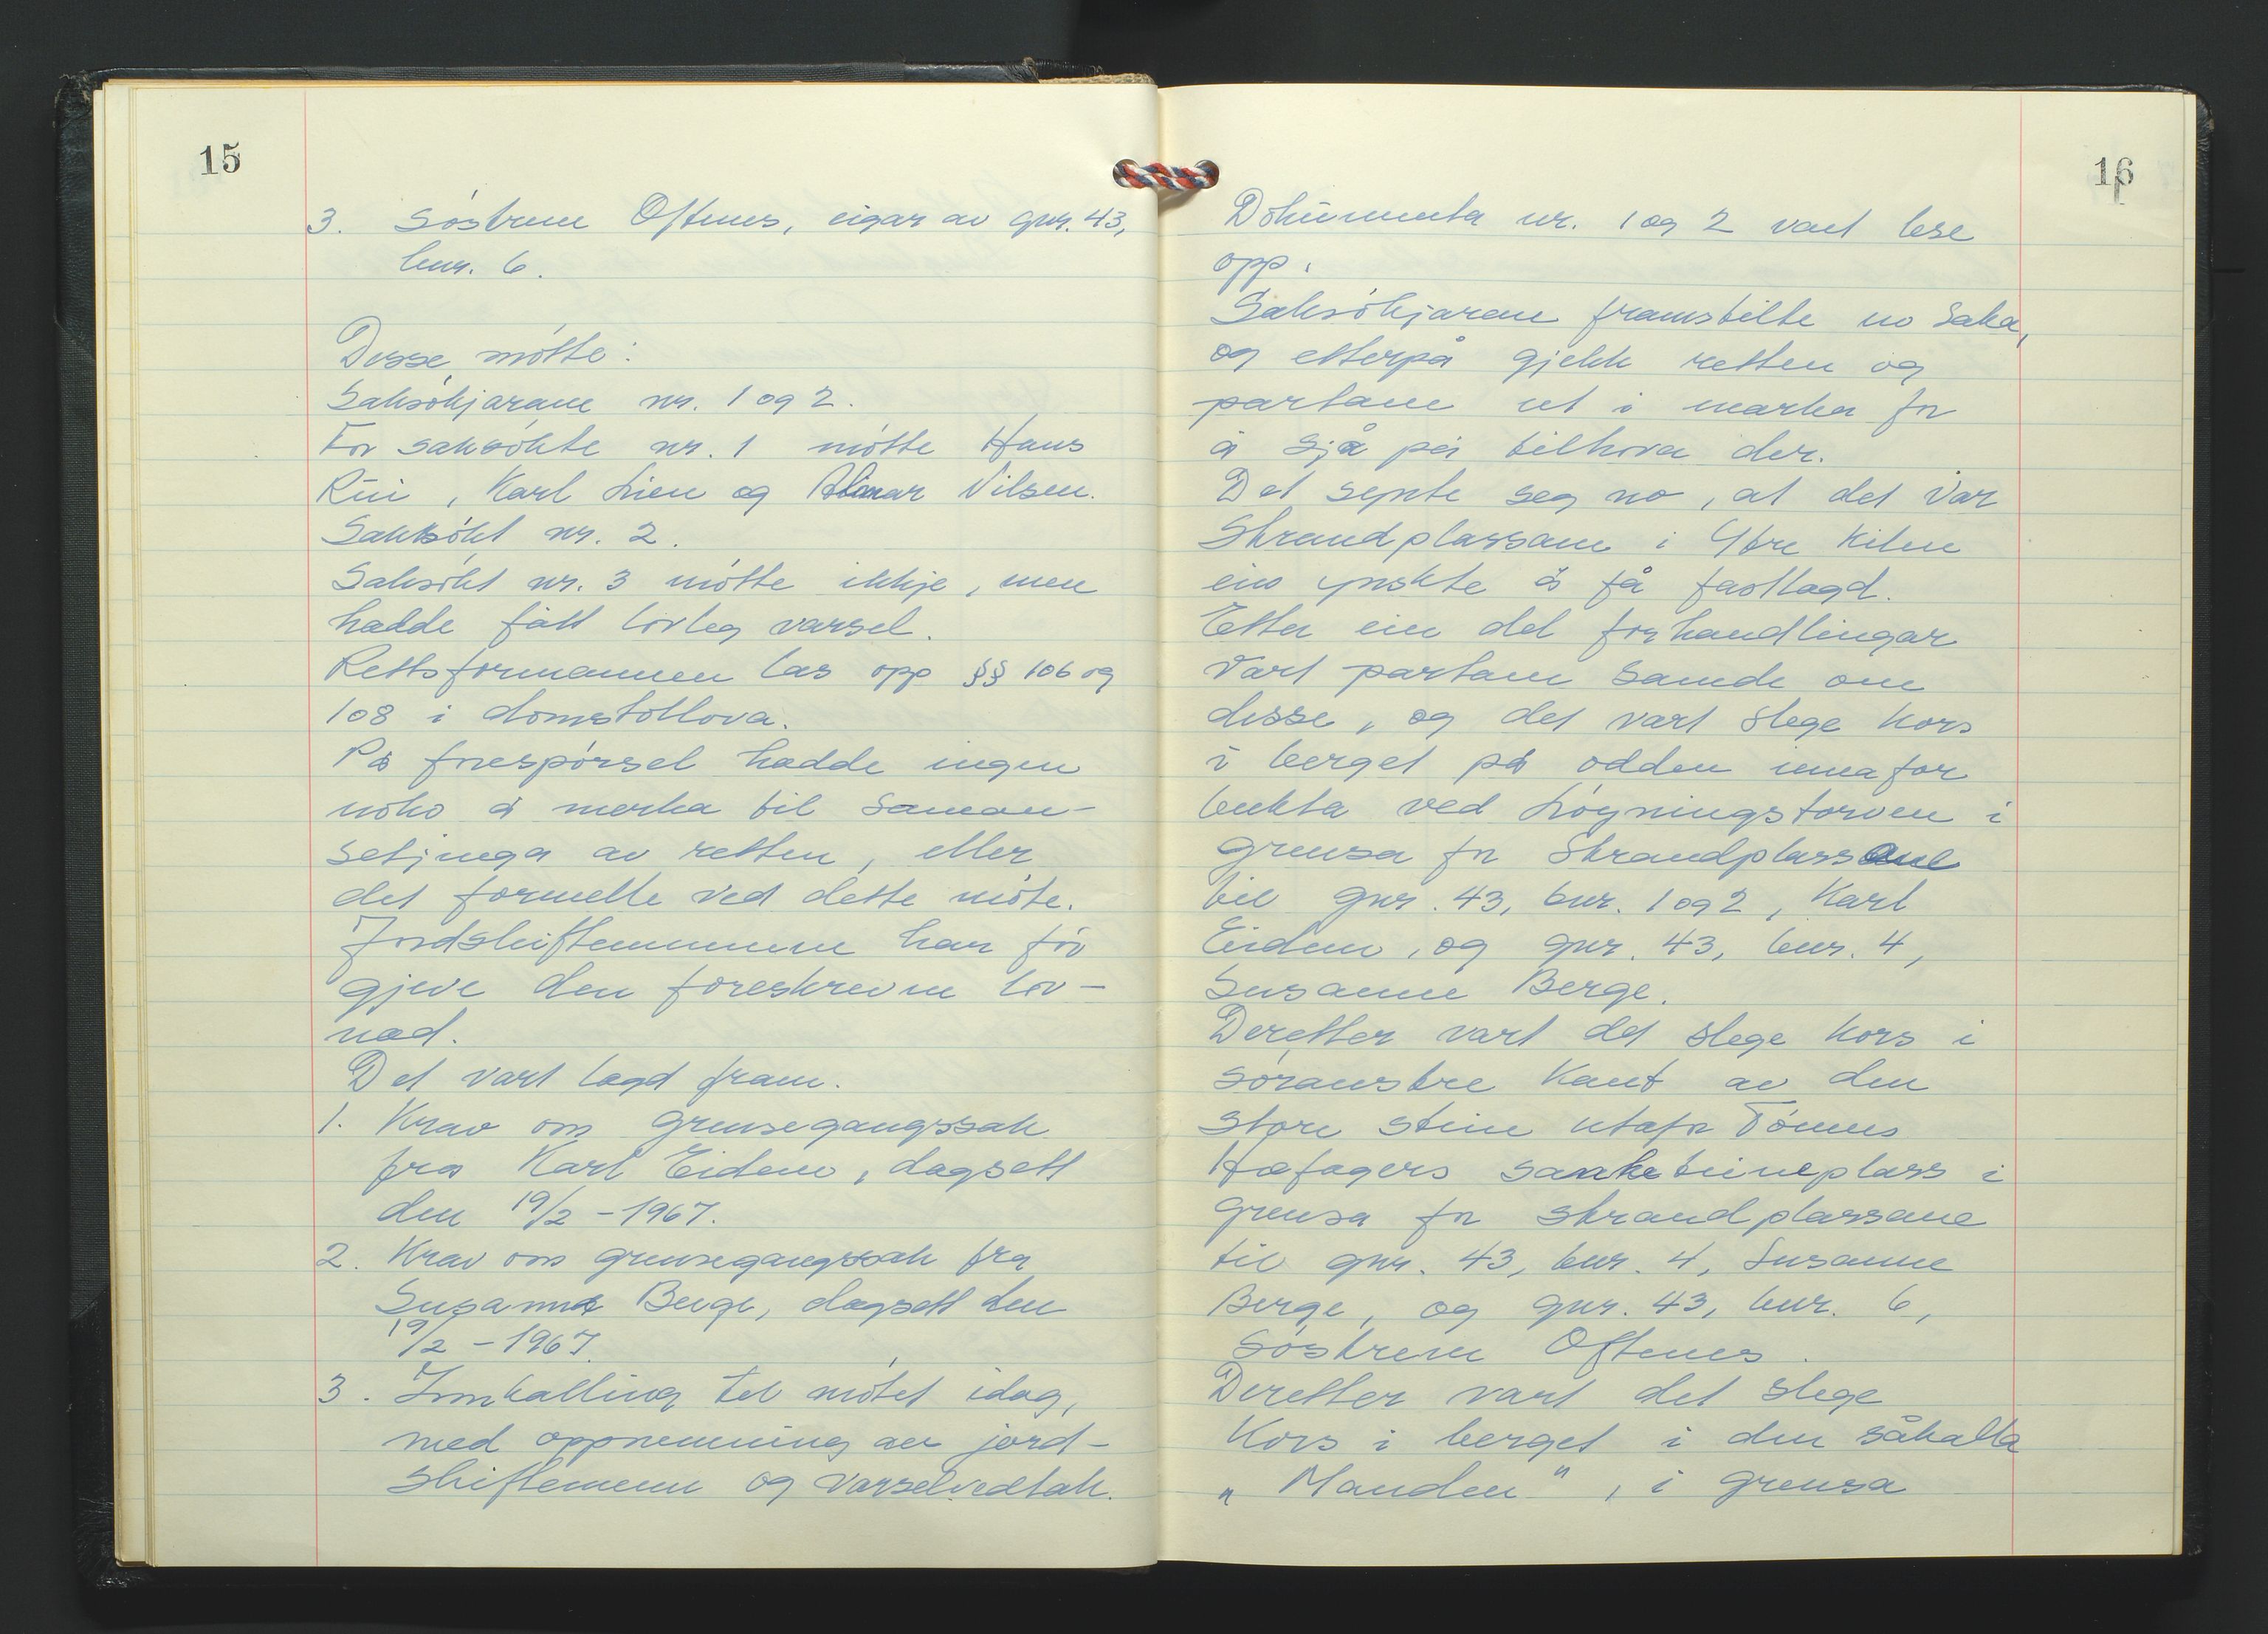 15
3. Søstrene Oftenes, eigar av gnr. 43,
bnr. 6.
Desse møtte:
Saksøkjarane nr. 1 og 2.
For saksøkte nr. 1 møtte Hans
Rui, Karl Lien og Almar Nilsen.
Saksøkt nr. 2.
Saksøkt nr. 3 møtte ikkje, men
hadde fått lovleg varsel.
Rettsformannen las opp §§ 106 og
108 i domstollova.
På førespørsel hadde ingen
noko å merka til saman-
setjinga av retten, eller
det formelle ved dette møte.
Jordskiftemennene har før
gjeve den foreskrevne lov-
nad.
Det vart lagd fram.
1. Krav om grensegangssak
fra Karl Eidem, dagsett
den 19/2 - 1967.
2. Krav om grensegangssak fra
Susanna Berge, dagsett den
19/2 - 1967.
3. Innkalling til møtet idag,
med oppnemning av jord-
skiftemenn og varselvedtak.
16
Dokumenta nr. 1 og 2 vart lese
opp.
Saksøkjarane framstilte no saka,
og etterpå gjekk retten og
partane ut i marka for
å sjå på tilhøva der.
Det synte seg no, at det var
Strandplassane i Ytre Kilen
ein ynskte å få fastlagd.
Etter ein del forhandlingar
vart partane samde om
disse, og det vart slege kors
i berget på odden innafor
bukta ved Løgningstorven i
grensa for strandplassane
til gnr. 43, bnr. 1 og 2, Karl
Eidem, og gnr. 43, bnr. 4,
Susanne Berge.
Deretter vart det slege kors i
søraustre kant av den
store steine utafor Tønnes
Hæfagers plass i
grensa for strandplassane
til gnr. 43, bnr. 4, Susanne
Berge, og gnr. 43, bnr. 6,
Søstrene Oftenes.
Deretter vart det slege
Kors i berget i den såkalla
„Manden", i grensa